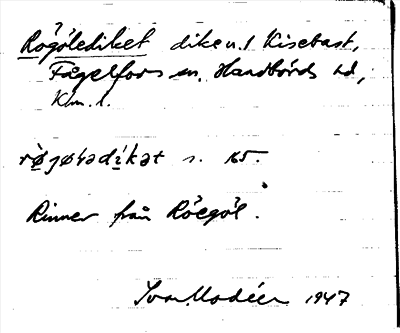 Rögölediket dike n. l Kisebast,
Fågelfors sn. Handbörds hd,
Klm. l.
røgøledikət s. 165.
Rinner från Röegöl.
Ivar Modéer 1947